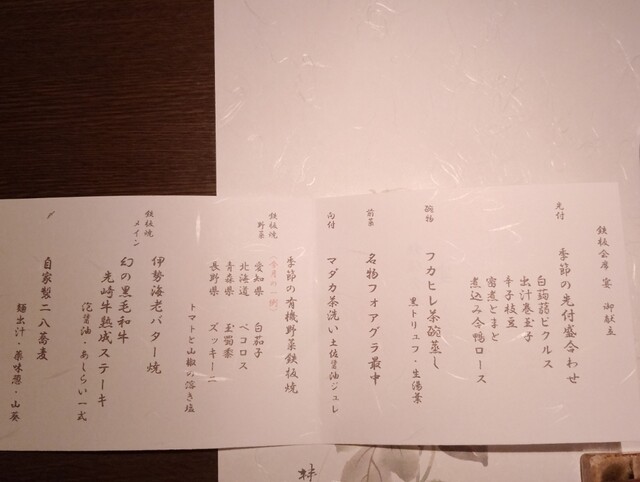 鉄板会席 宴 御献立
先付
季節の先付盛合わせ
白蒟蒻ピクルス
出汁巻玉子
辛子枝豆
蜜煮とまと
煮込み合鴨ロース
碗物
フカヒレ茶碗蒸し
黒トリュフ・生湯葉
前菜
名物フォアグラ最中
向付
マダカ茶洗い 土佐醤油ジュレ
鉄板焼
野菜
季節の有機野菜鉄板焼
(今月の一例)
愛知県 白茄子
北海道 ペコロス
青森県 玉蜀黍
長野県 ズッキーニ
トマトと山椒の溶き塩
鉄板焼
メイン
伊勢海老バター焼
幻の黒毛和牛
尾崎牛熟成ステーキ
泡醤油・あしらい一式
〆
自家製二八蕎麦
麺出汁・薬味葱・山葵
絆